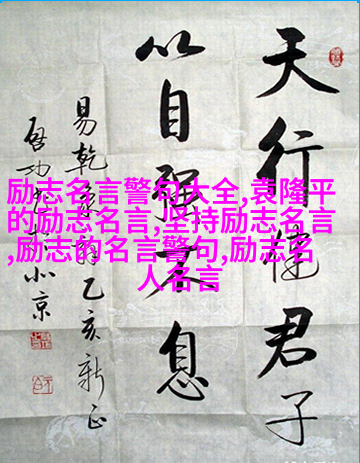 天行健君子
以自强不息
易乾象辞乙亥新正
启功书于北京
励志名言警句大全,袁隆平
的励志名言,坚持励志名言
,励志的名言警句,励志名
人名言